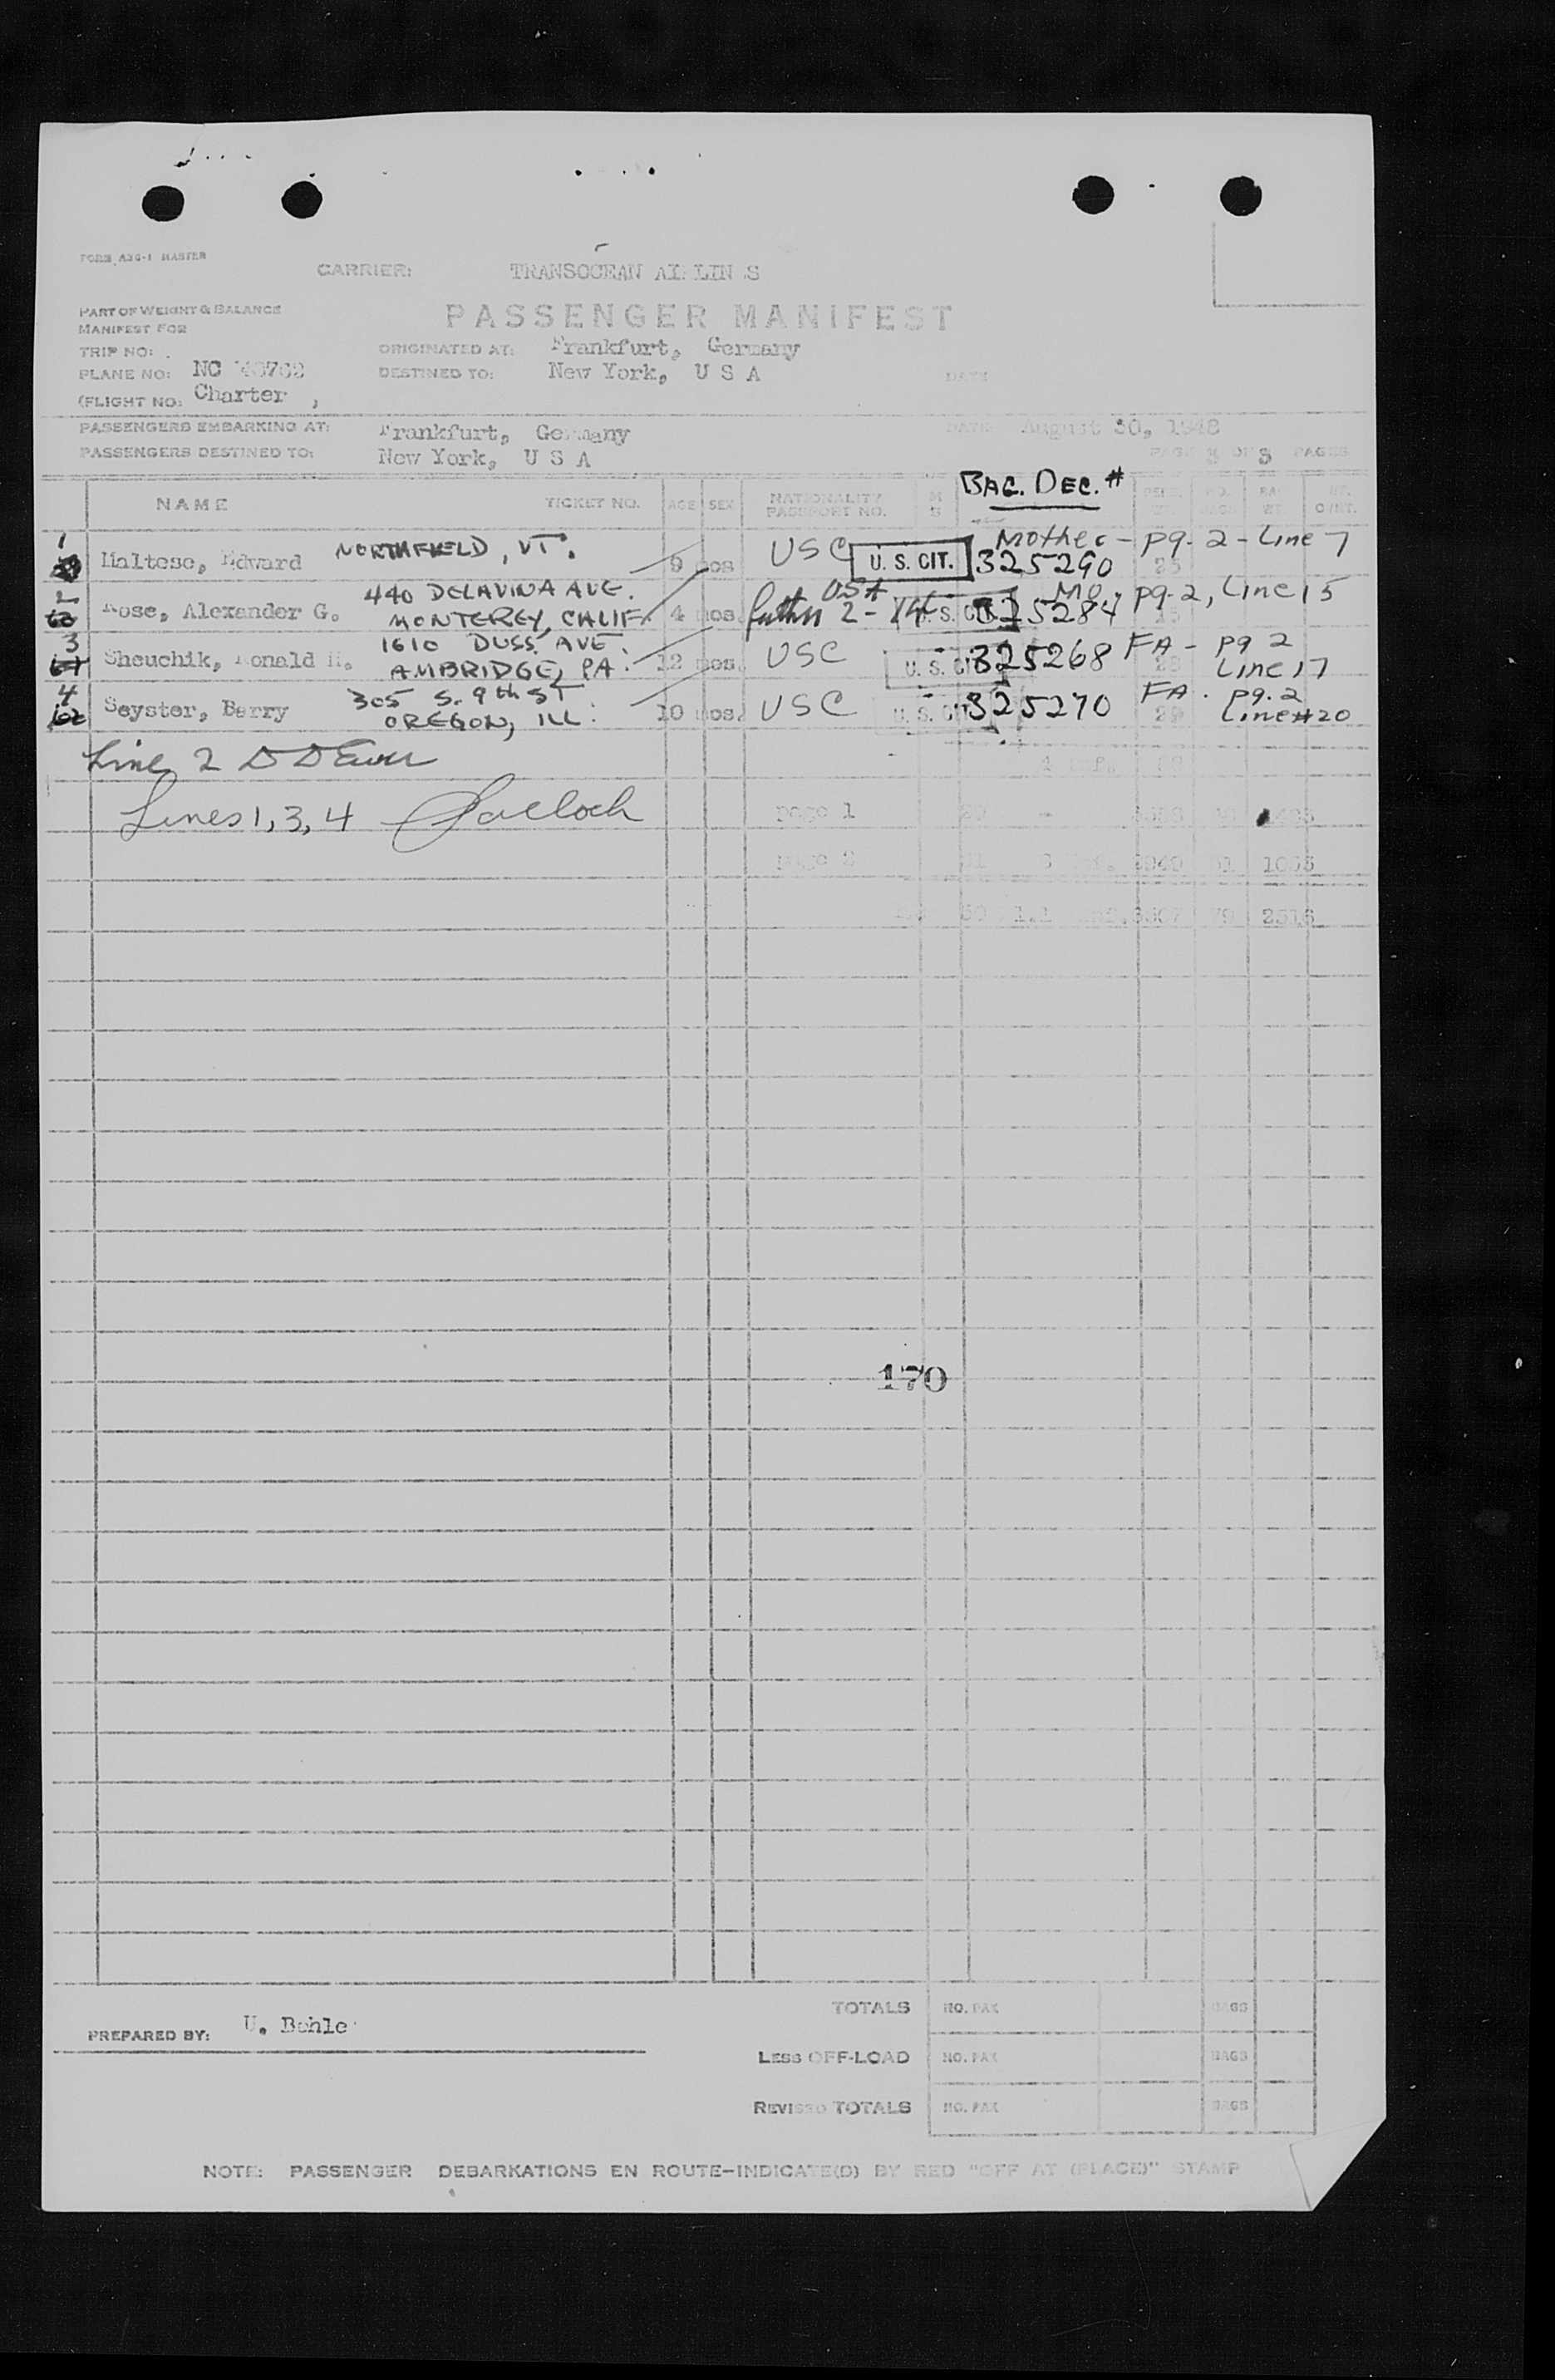 FORM A26-1 MASTER
CARRIER: TRANSOCEAN AIRLINES
PART OF WEIGHT & BALANCE
MANIFEST FOR
PASSENGER MANIFEST
TRIP NO:
ORIGINATED AT: Frankfurt, Germany
PLANE NO: NC
DESTINED TO: New York, U S A
DATE
(FLIGHT NO: Charter )
PASSENGERS EMBARKING AT: Frankfurt, Germany
DATE August 30, 1948
PASSENGERS DESTINED TO: New York, U S A
PAGE 3 OF 3 PAGES
BAG. DEC. #
NAME TICKET NO. AGE SEX NATIONALITY PASSPORT NO. M S
1 Maltese, Edward NORTHFIELD, VT. 9 mos USC U. S. CIT. 325290 Mother - pg. 2 - Line 7
2 Rose, Alexander G. 440 DELAVINA AVE. MONTEREY, CALIF. 4 mos. USA father 2 - 14 U. S. CIT. 325284 Mo. pg. 2, Line 15
3 Sheuchik, Ronald 1610 DUSS. AVE. AMBRIDGE, PA. 12 mos. USC U. S. CIT. 325268 FA - pg 2 Line 17
4 Seyster, Barry 305 S. 9th ST. OREGON, ILL. 10 mos. USC U. S. CIT. 325270 FA. pg. 2 Line #20
Line 2
Lines 1, 3, 4
page 1
page 2 1035
79 2516
170
TOTALS NO. PAX BAGS
PREPARED BY: U. Behle
LESS OFF-LOAD NO. PAX BAGS
REVISED TOTALS NO. PAX BAGS
NOTE: PASSENGER DEBARKATIONS EN ROUTE-INDICATE(D) BY RED "OFF AT (PLACE)" STAMP